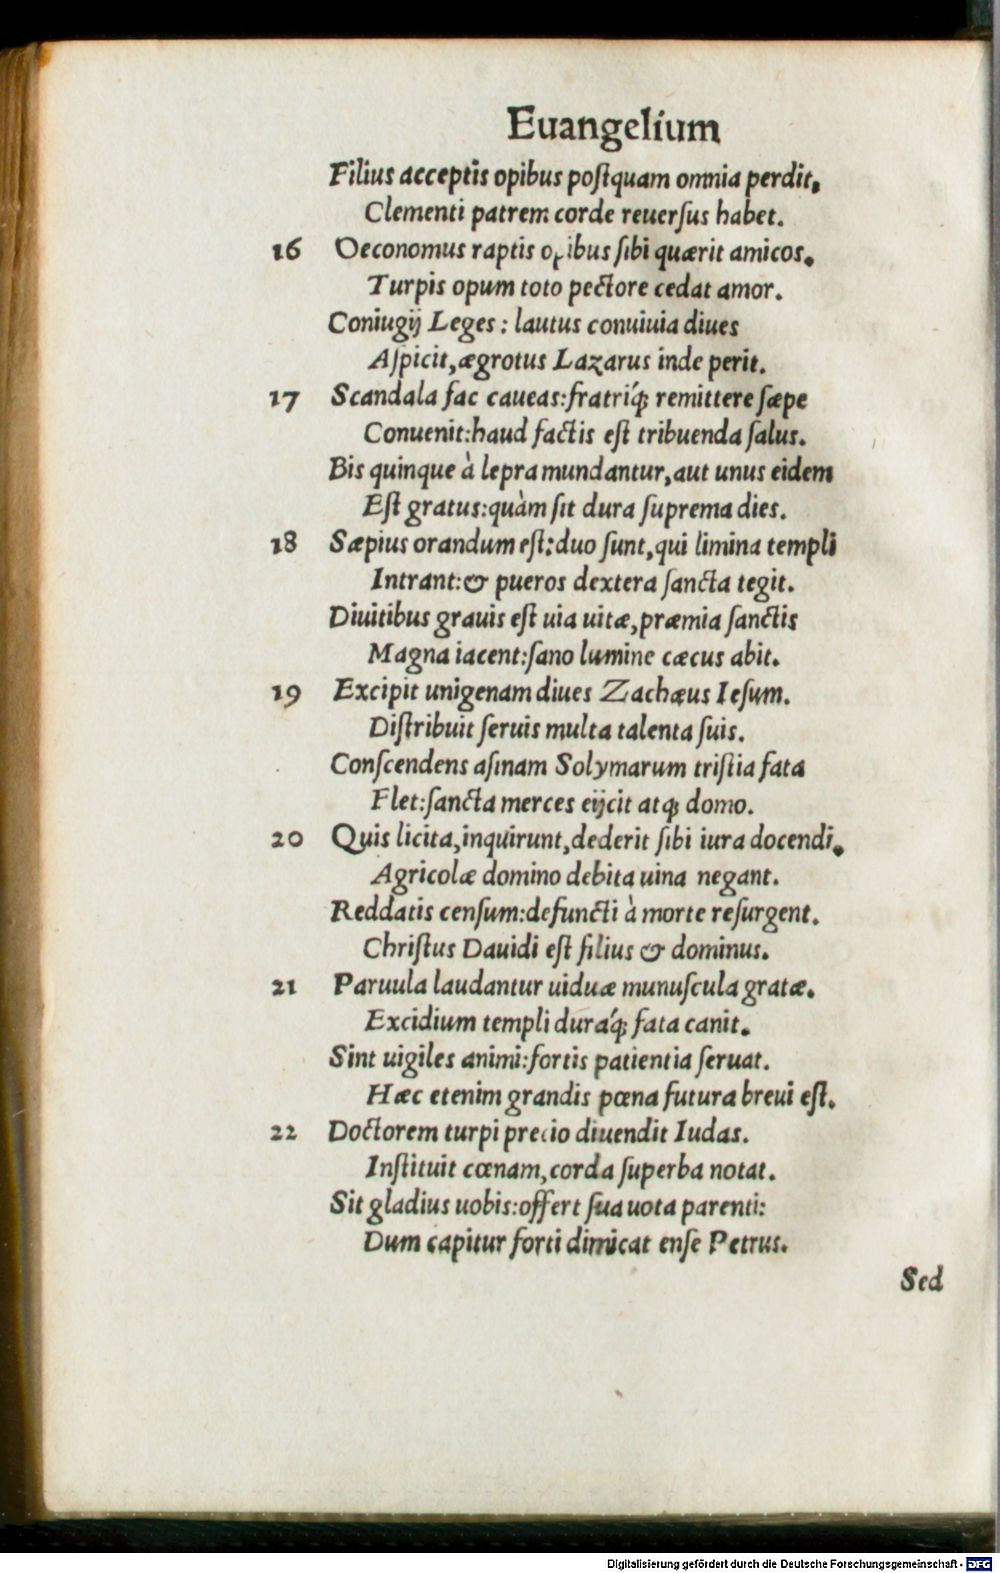 Euangelium
Filius acceptis opibus poſtquam omnia perdit,
Clementi patrem corde reuerſus habet.
16 Oeconomus raptis opibus ſibi quærit amicos.
Turpis opum toto pectore cedat amor.
Coniugij Leges: lautus conuiuia diues
Aſpicit, ægrotus Lazarus inde perit.
17 Scandala fac caueas: fratriq́; remittere ſæpe
Conuenit: haud factis eſt tribuenda ſalus.
Bis quinque à lepra mundantur, aut unus eidem
Eſt gratus: quàm ſit dura ſuprema dies.
18 Sæpius orandum eſt: duo ſunt, qui limina templi
Intrant: & pueros dextera ſancta tegit.
Diuitibus grauis eſt uia uitæ, præmia ſanctis
Magna iacent: ſano lumine cæcus abit.
19 Excipit unigenam diues Zachæus Ieſum.
Diſtribuit ſeruis multa talenta ſuis.
Conſcendens aſinam Solymarum triſtia fata
Flet: ſancta merces eijcit atq; domo.
20 Quis licita, inquirunt, dederit ſibi iura docendi.
Agricolæ domino debita uina negant.
Reddatis cenſum: defuncti à morte reſurgent.
Chriſtus Dauidi eſt filius & dominus.
21 Paruula laudantur uiduæ munuſcula gratæ.
Excidium templi duraq́; fata canit.
Sint uigiles animi: fortis patientia ſeruat.
Hæc etenim grandis pœna futura breui eſt.
22 Doctorem turpi precio diuendit Iudas.
Inſtituit cœnam, corda ſuperba notat.
Sit gladius uobis: offert ſua uota parenti:
Dum capitur forti dimicat enſe Petrus.
Sed
Digitalisierung gefördert durch die Deutsche Forschungsgemeinschaft - DFG